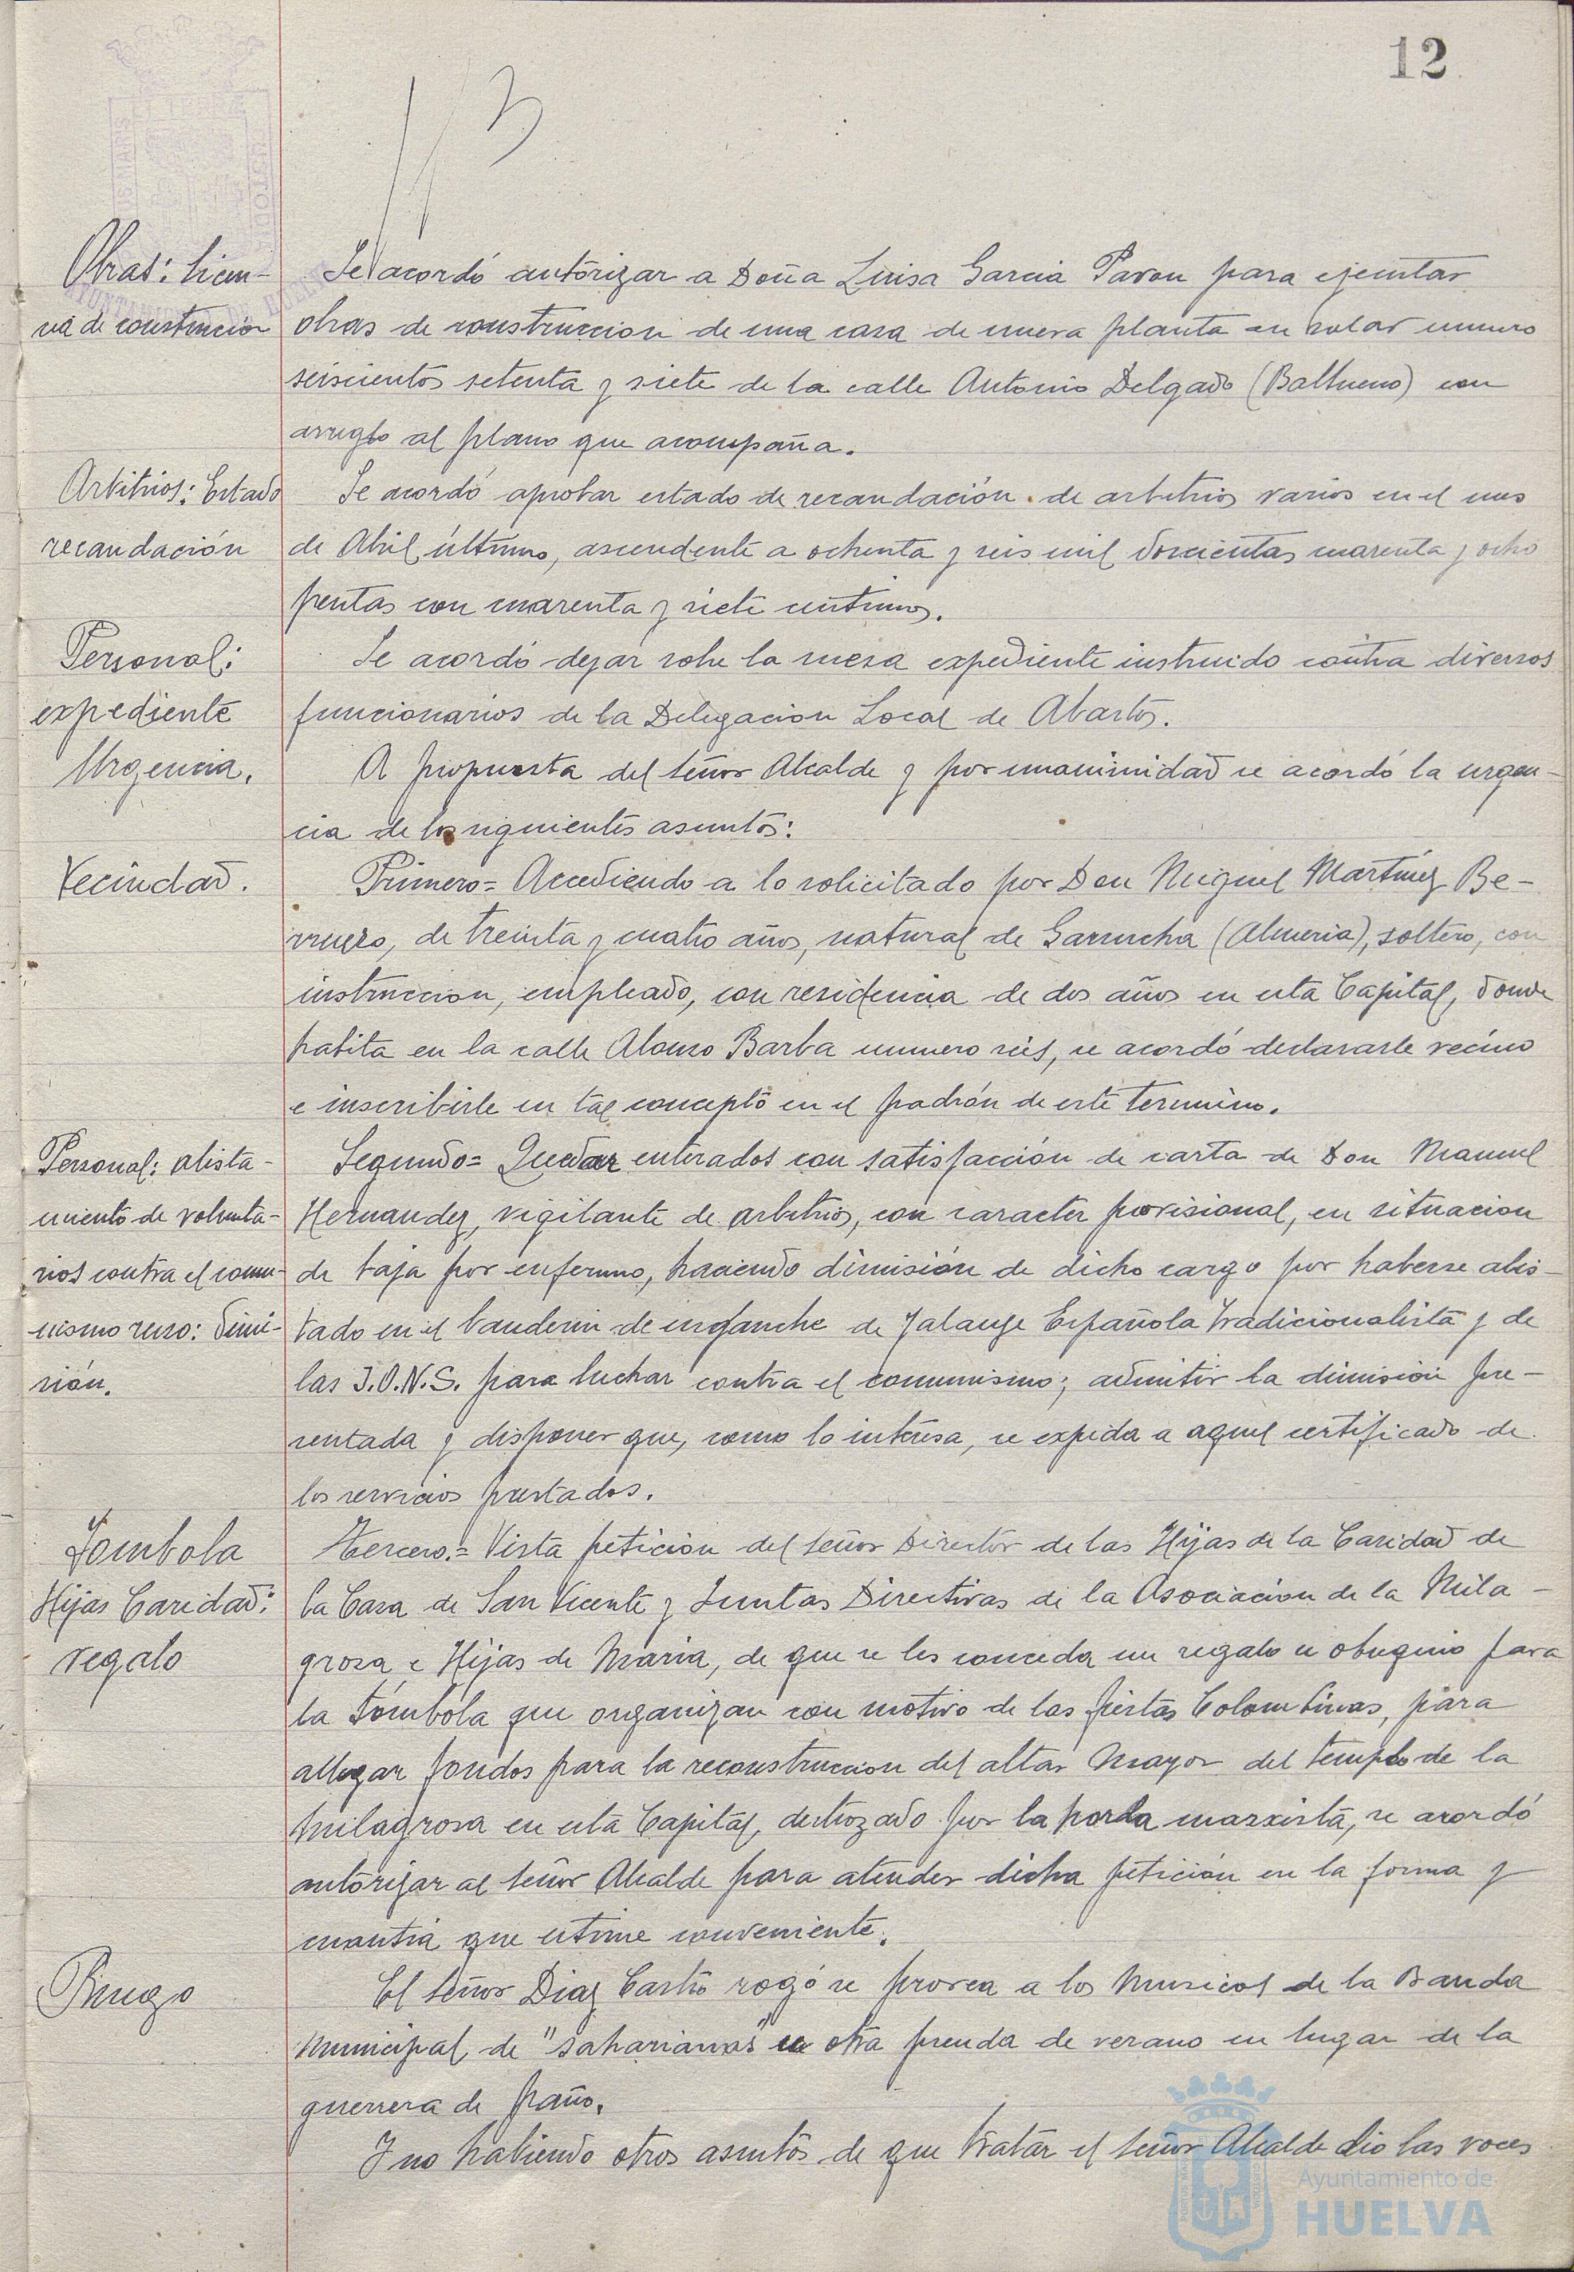 12
Obras: licen-
cia de construccion
Se acordó autorizar a Doña Luisa Garcia Pavon para ejecutar
obras de construccion de una casa de nueva planta en solar numero
seiscientos setenta y siete de la calle Antonio Delgado (Balbueno) con
arreglo al plano que acompaña.
Arbitrios: Estado
recaudación
Se acordó aprobar estado de recaudación de arbitrios varios en el mes
de Abril último, ascendente a ochenta y seis mil doscientas cuarenta y ocho
pesetas con cuarenta y siete centimos.
Personal:
expediente
Se acordó dejar sobre la mesa expediente instruido contra diversos
funcionarios de la Delegacion Local de Abastos.
Urgencia.
A propuesta del señor Alcalde y por unanimidad se acordó la urgen-
cia de los siguientes asuntos:
Vecindad.
Primero= Accediendo a lo solicitado por Don Miguel Martínez Be-
rruezo, de treinta y cuatro años, natural de Garrucha (Almeria), soltero, con
instruccion, empleado, con residencia de dos años en esta Capital, donde
habita en la calle Alonso Barba numero seis, se acordó declararle vecino
e inscribirle en tal concepto en el padrón de este termino.
Personal: alista-
miento de volunta-
rios contra el comu-
nismo ruso: dimi-
sión.
Segundo= Quedar enterados con satisfacción de carta de Don Manuel
Hernandez, vigilante de arbitrios, con caracter provisional, en situacion
de baja por enfermo, haciendo dimisión de dicho cargo por haberse alis-
tado en el banderin de enganche de Falange Española Tradicionalista y de
las J.O.N.S. para luchar contra el comunismo; admitir la dimision pre-
sentada y disponer que, como lo interesa, se expida a aquel certificado de
los servicios prestados.
Tombola
Hijas Caridad:
regalo
Tercero.= Vista peticion del señor Director de las Hijas de la Caridad de
la Casa de San Vicente y Juntas Directivas de la Asociacion de la Mila-
grosa e Hijas de Maria, de que se les conceda un regalo u obsequio para
la tómbola que organizan con motivo de las fiestas Colombinas, para
allegar fondos para la reconstruccion del altar Mayor del templo de la
Milagrosa en esta Capital, destrozado por la horda marxista, se acordó
autorizar al señor Alcalde para atender dicha petición en la forma y
cuantia que estime conveniente.
Ruego
El señor Diaz Castro rogó se provea a los Musicos de la Banda
Municipal de "saharianas" u otra prenda de verano en lugar de la
guerrera de paño.
Y no habiendo otros asuntos de que tratar el señor Alcalde dio las voces
Ayuntamiento de
HUELVA